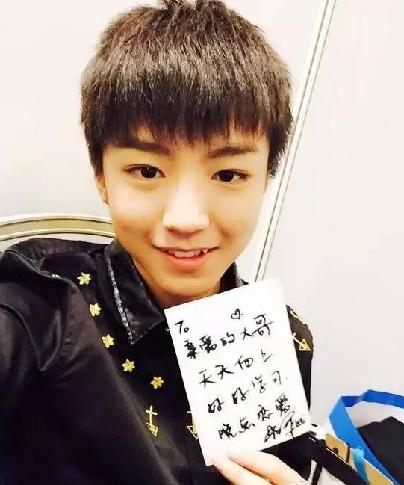 To
亲爱的大哥
天天向上
好好学习
晚点恋爱